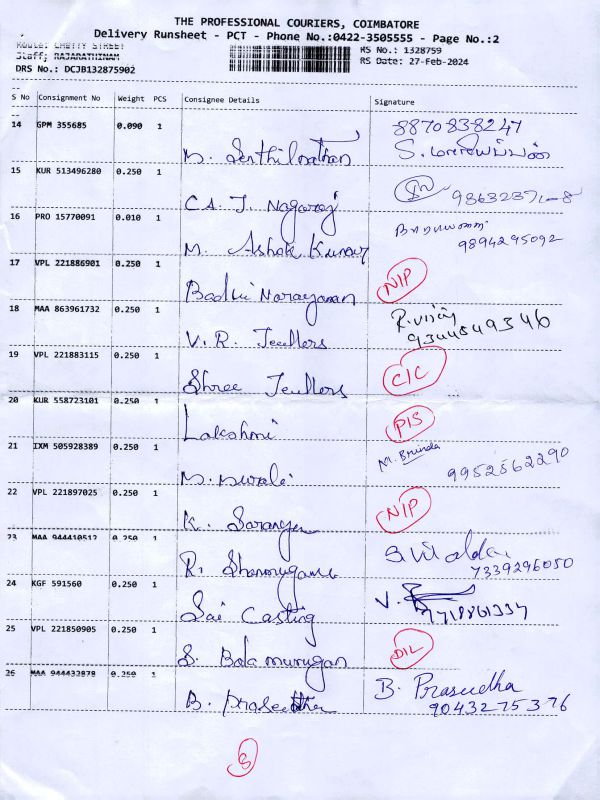 THE PROFESSIONAL COURIERS, COIMBATORE
Delivery Runsheet - PCT - Phone No.:0422-3505555 - Page No.:2
Route: CHETTY STREET
Staff: RAJARATHINAM
DRS No.: DCJB132875902
RS No.: 1328759
RS Date: 27-Feb-2024
S No Consignment No Weight PCS Consignee Details Signature
14 GPM 355685 0.090 1 M. Senthilnathan 8870838247
S.
15 KUR 513496280 0.250 1 C.S. J. Nagaraj
16 PRO 15770091 0.010 1 M. Ashok Kumar 9894295092
17 VPL 221886901 0.250 1 Badhri Narayanan NIP
18 MAA 863961732 0.250 1 V. R. Jewllers R. Vijay
9344849346
19 VPL 221883115 0.250 1 Shree Jewllers C/C
20 KUR 558723101 0.250 1 Lakshmi PIS
21 IXM 505928389 0.250 1 M. Murali M. Brinda
9952562290
22 VPL 221897025 0.250 1 K. Saranya NIP
23 MAA 944410512 0.250 1 R. Shanmugam
7339296050
24 KGF 591560 0.250 1 Sai Casting V.
25 VPL 221850905 0.250 1 S. Balamurugan D/L
26 MAA 944432878 0.250 1 B. Praseetha B. Prasudha
9043275376